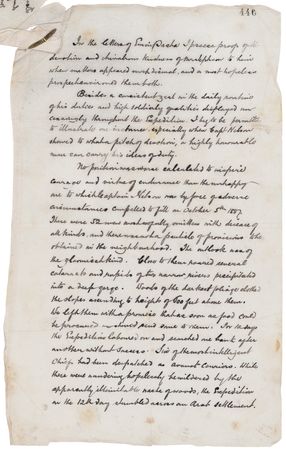 446
In the letters of Emin Pasha I possess proof of the
devotion and chivalrous kindness of Nelson to him
when matters appeared most dismal, and a most hopeless
prospect environed them both.
Besides a consistent zeal in the daily routine
of his duties and high soldierly qualities displayed
unceasingly throughout the Expedition I beg to be permitted
to illustrate an instance especially when Capt Nelson
showed to what a pitch of devotion, a highly honourable
man can carry his ideas of duty.
No position was ever calculated to inspire
courage and virtue of endurance than the unhappy
one to which Captain Nelson was by force of adverse
circumstances compelled to fill on October 5th 1887.
There were 52 men unhappily smitten with disease of
all kinds, and there was not a particle of provisions to be
obtained in the neighbourhood. The outlook was of
the gloomiest kind. Close to them roared several
cataracts and rapids of two narrow rivers precipitated
into a deep gorge. Woods of the darkest foliage clothed
the slopes ascending to height of 600 feet above them.
We left them with a promise that as soon as food could
be procured we should send some to them. For 10 days
the Expedition laboured on and searched one bank after
another without success. Six of the most intelligent
Chiefs had been despatched as avant couriers. While
these were wandering hopelessly bewildered by the
apparently illimitable waste of woods, the Expedition
on the 12th day stumbled across an Arab settlement.